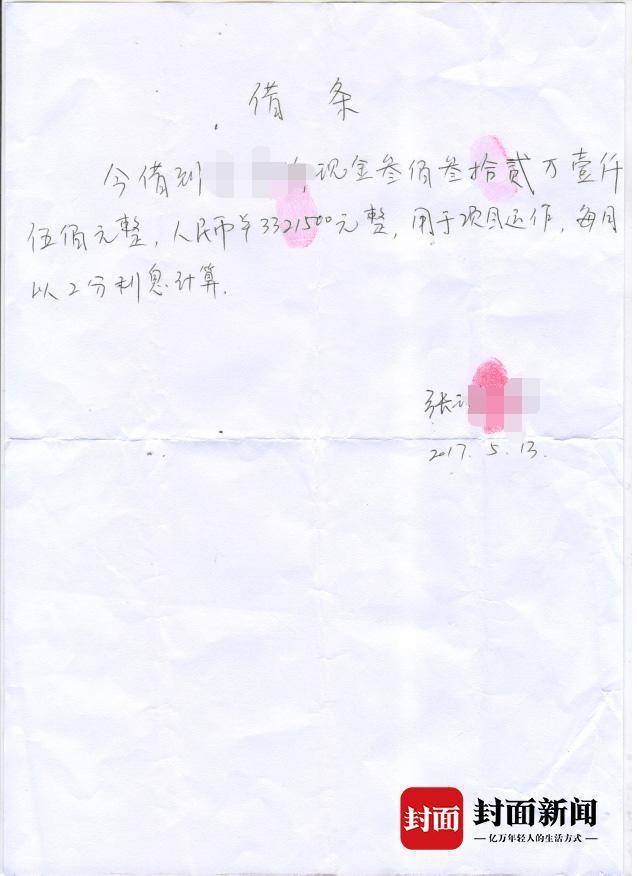 借 条
今借到 ,现金叁佰叁拾贰万壹仟
伍佰元整，人民币￥3321500元整，用于项目运作，每月
以2分利息计算.
张
2017.5.13.
封面 封面新闻
亿万年轻人的生活方式